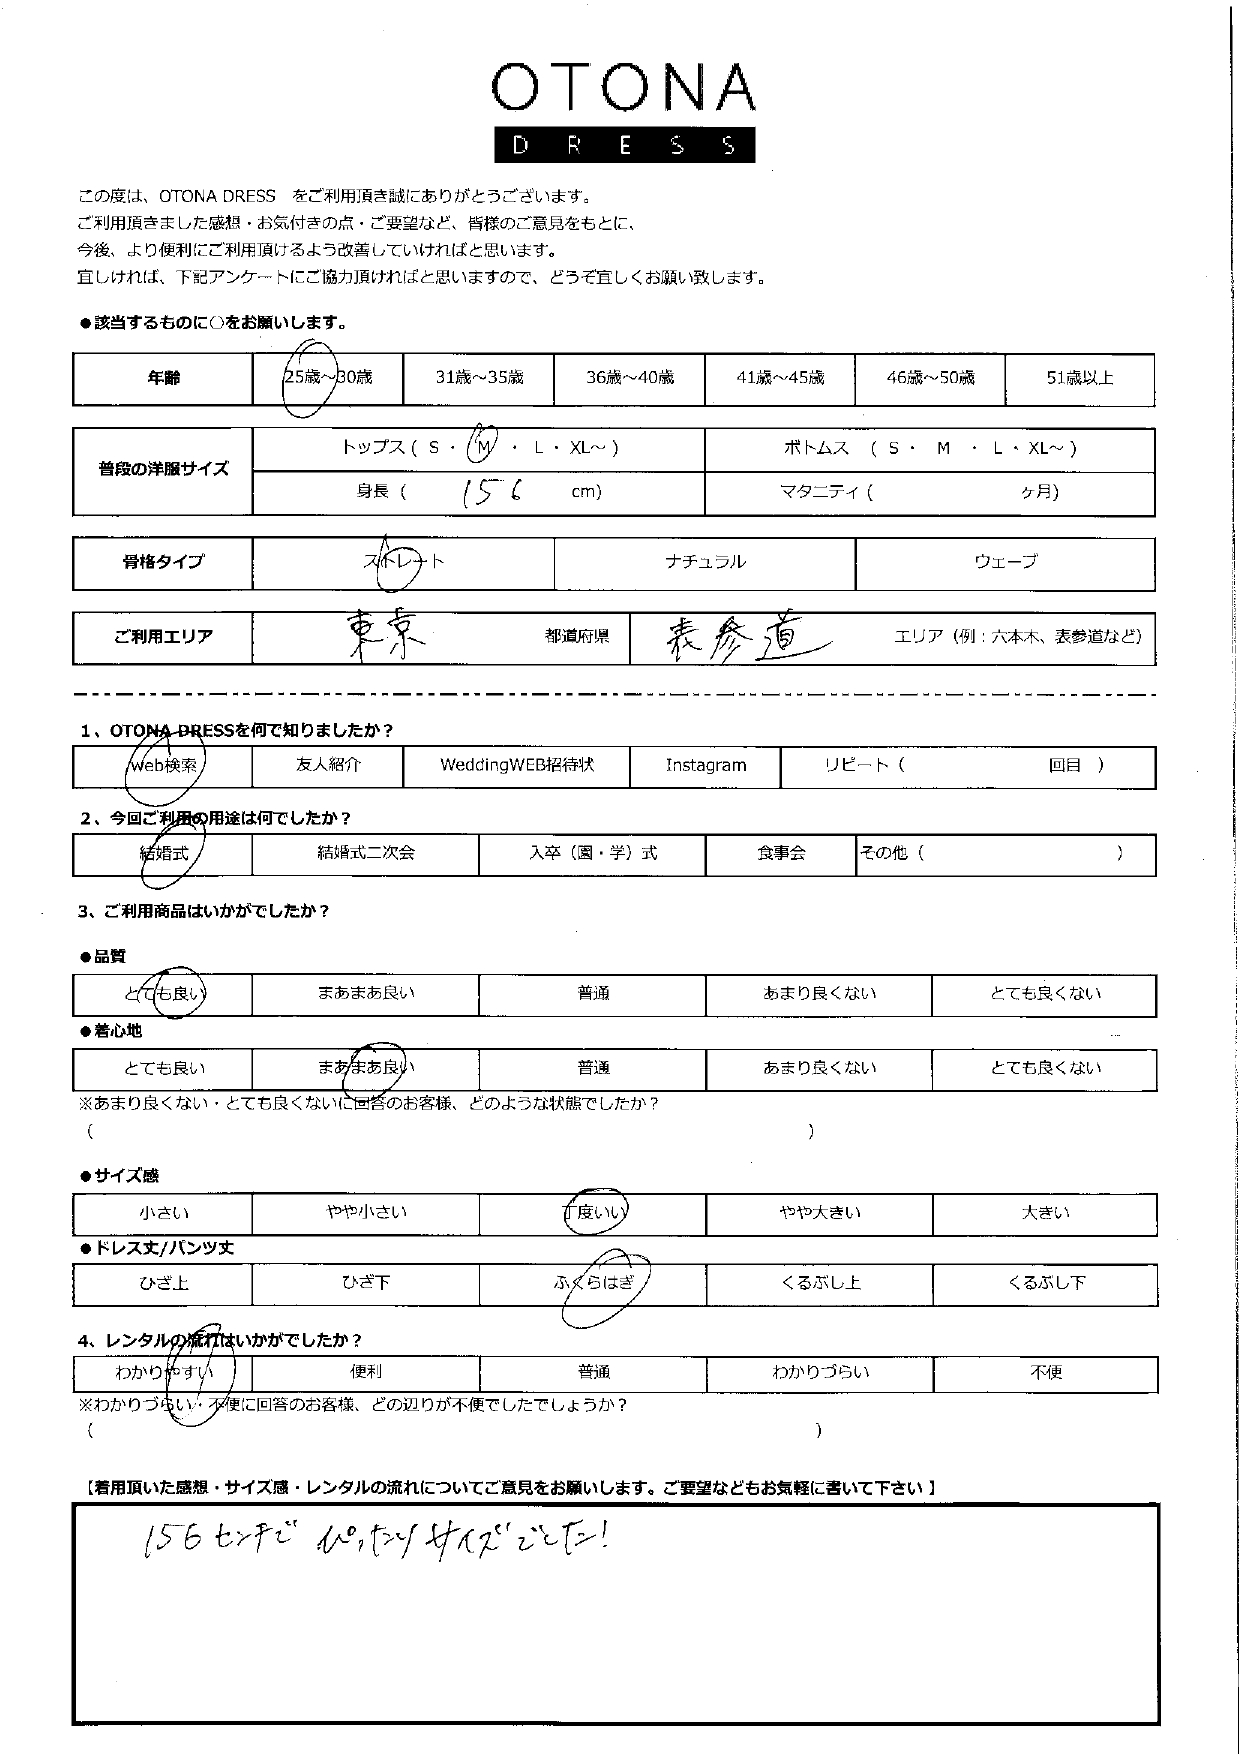 OTONA
DRESS
この度は、OTONA DRESS　をご利用頂き誠にありがとうございます。
ご利用頂きました感想・お気付きの点・ご要望など、皆様のご意見をもとに、
今後、より便利にご利用頂けるよう改善していければと思います。
宜しければ、下記アンケートにご協力頂ければと思いますので、どうぞ宜しくお願い致します。
●該当するものに○をお願いします。
年齢 25歳～30歳 31歳～35歳 36歳～40歳 41歳～45歳 46歳～50歳 51歳以上
普段の洋服サイズ トップス ( S ・ M ・ L ・ XL～ ) ボトムス ( S ・ M ・ L ・ XL～ )
身長 ( 156 cm) マタニティ ( ヶ月)
骨格タイプ ストレート ナチュラル ウェーブ
ご利用エリア 東京 都道府県 表参道 エリア（例：六本木、表参道など）
1、OTONA DRESSを何で知りましたか？
Web検索 友人紹介 WeddingWEB招待状 Instagram リピート（ 回目 ）
2、今回ご利用の用途は何でしたか？
結婚式 結婚式二次会 入卒（園・学）式 食事会 その他（ ）
3、ご利用商品はいかがでしたか？
●品質
とても良い まあまあ良い 普通 あまり良くない とても良くない
●着心地
とても良い まあまあ良い 普通 あまり良くない とても良くない
※あまり良くない・とても良くないに回答のお客様、どのような状態でしたか？
( )
●サイズ感
小さい やや小さい 丁度いい やや大きい 大きい
●ドレス丈/パンツ丈
ひざ上 ひざ下 ふくらはぎ くるぶし上 くるぶし下
4、レンタルの流れはいかがでしたか？
わかりやすい 便利 普通 わかりづらい 不便
※わかりづらい・不便に回答のお客様、どの辺りが不便でしたでしょうか？
( )
【着用頂いた感想・サイズ感・レンタルの流れについてご意見をお願いします。ご要望などもお気軽に書いて下さい】
156センチで ぴったりサイズでした!